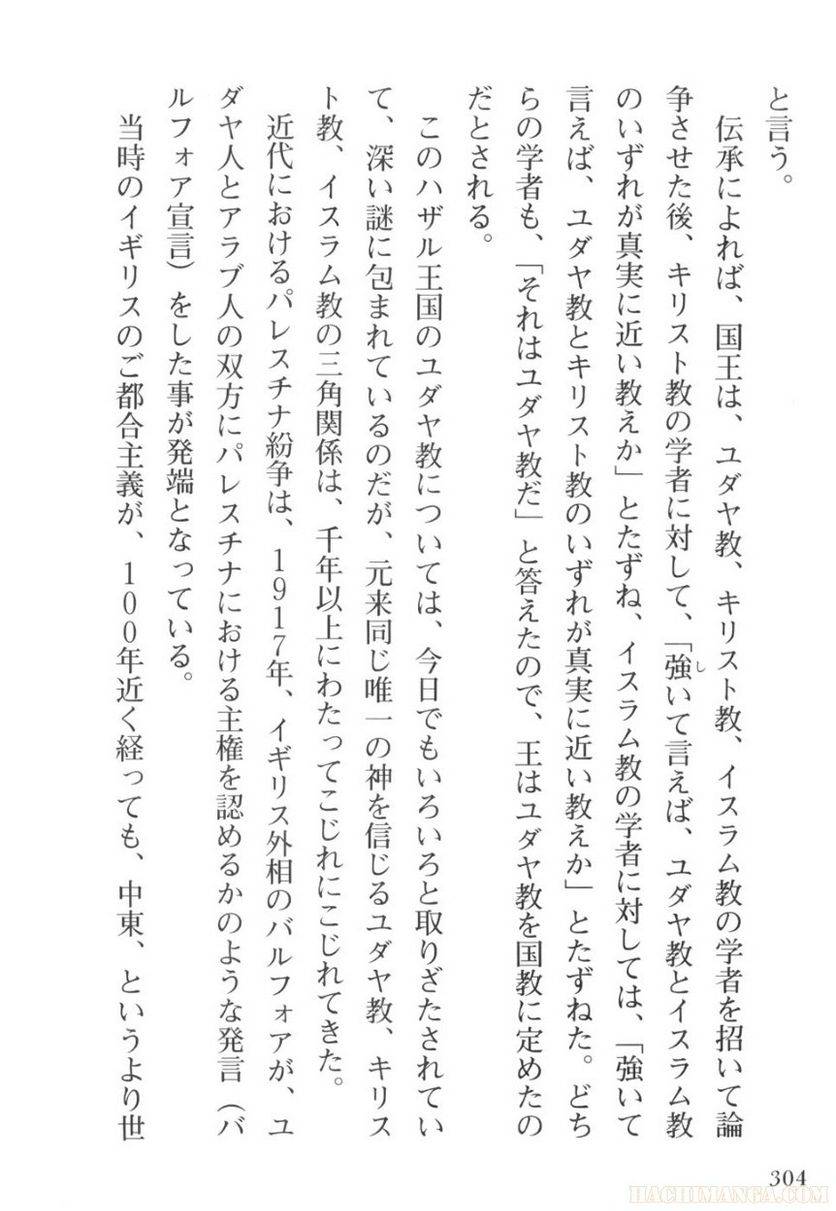 と言う。
伝承によれば、国王は、ユダヤ教、キリスト教、イスラム教の学者を招いて論
争させた後、キリスト教の学者に対して、「強いて言えば、ユダヤ教とイスラム教
し
のいずれが真実に近い教えか」とたずね、イスラム教の学者に対しては、「強いて
言えば、ユダヤ教とキリスト教のいずれが真実に近い教えか」とたずねた。どち
らの学者も、「それはユダヤ教だ」と答えたので、王はユダヤ教を国教に定めたの
だとされる。
このハザル王国のユダヤ教については、今日でもいろいろと取りざたされてい
て、深い謎に包まれているのだが、元来同じ唯一の神を信じるユダヤ教、キリス
ト教、イスラム教の三角関係は、千年以上にわたってこじれにこじれてきた。
近代におけるパレスチナ紛争は、1917年、イギリス外相のバルフォアが、ユ
ダヤ人とアラブ人の双方にパレスチナにおける主権を認めるかのような発言（バ
ルフォア宣言）をした事が発端となっている。
当時のイギリスのご都合主義が、100年近く経っても、中東、というより世
304
HACHIMANGA.COM